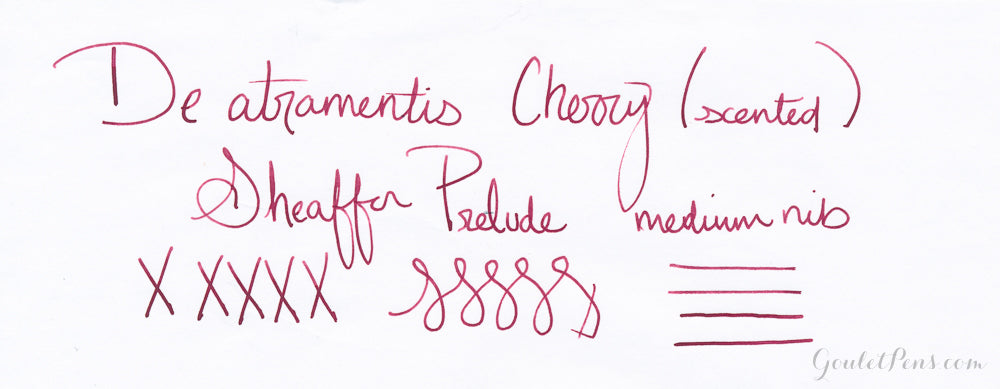 De atramentis Cherry (scented)
Sheaffer Prelude medium nib
X XXXX
GouletPens.com